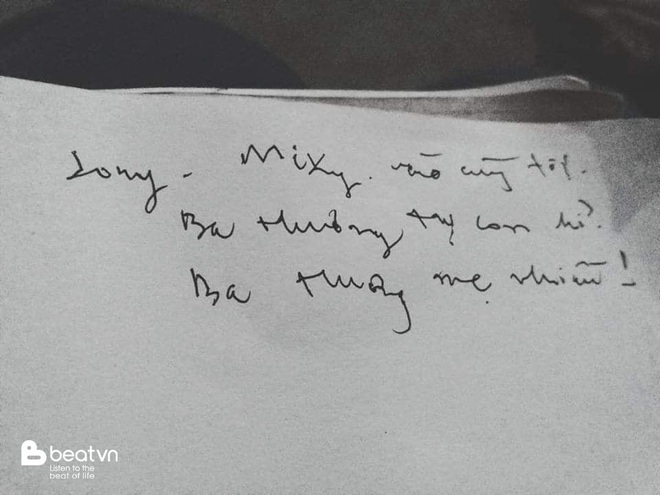 Sony - Mixy. vào cũng tốt.
Ba thương tụi con
Ba thương mẹ nhiều!
beatvn
Listen to the
beat of life